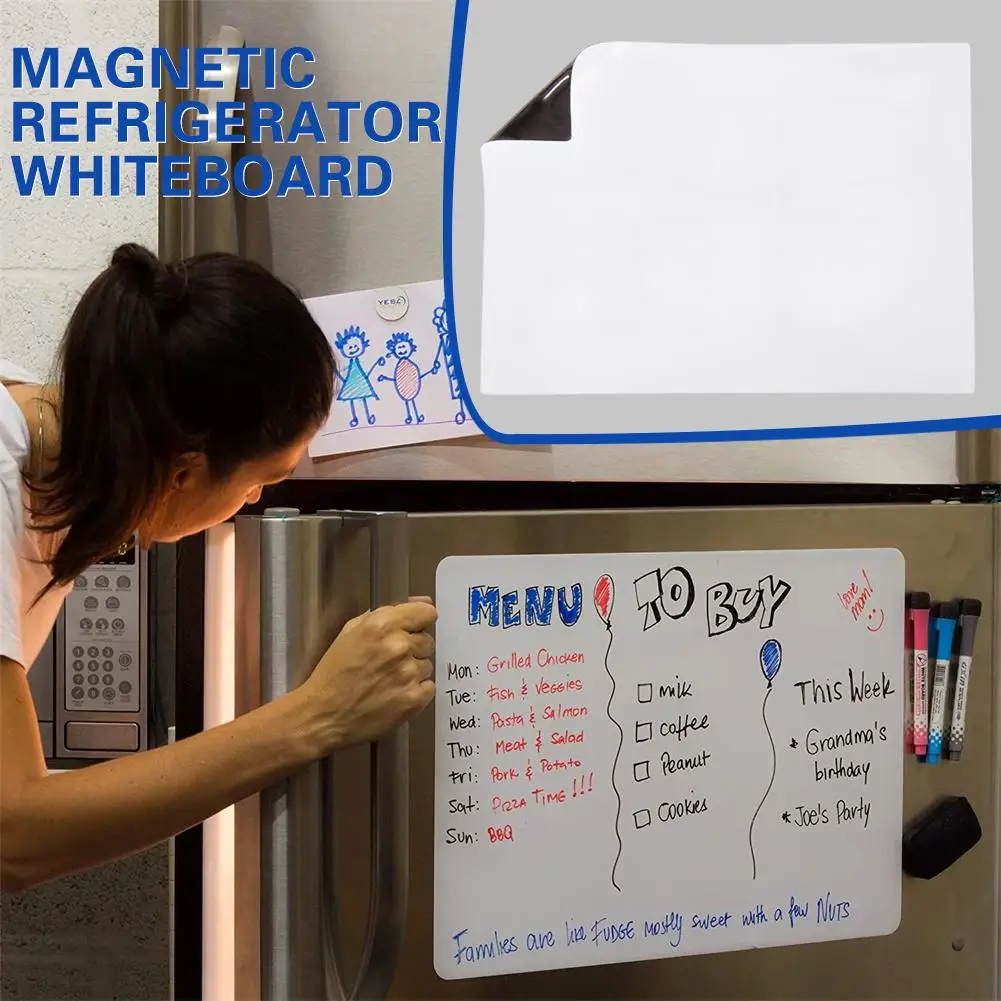 MAGNETIC
REFRIGERATOR
WHITEBOARD
YESA
MENU
Mon: Grilled Chicken
Tue: Fish & Veggies
Wed: Pasta & Salmon
Thu: Meat & Salad
Fri: Pork & Potato
Sat: PIZZA TIME!!!
Sun: BBQ
TO BUY
milk
coffee
Peanut
Cookies
love
mom!
This Week
* Grandma's
birthday
* Joe's Party
Families are like FUDGE mostly sweet with a few NUTS
WHITE BOARD